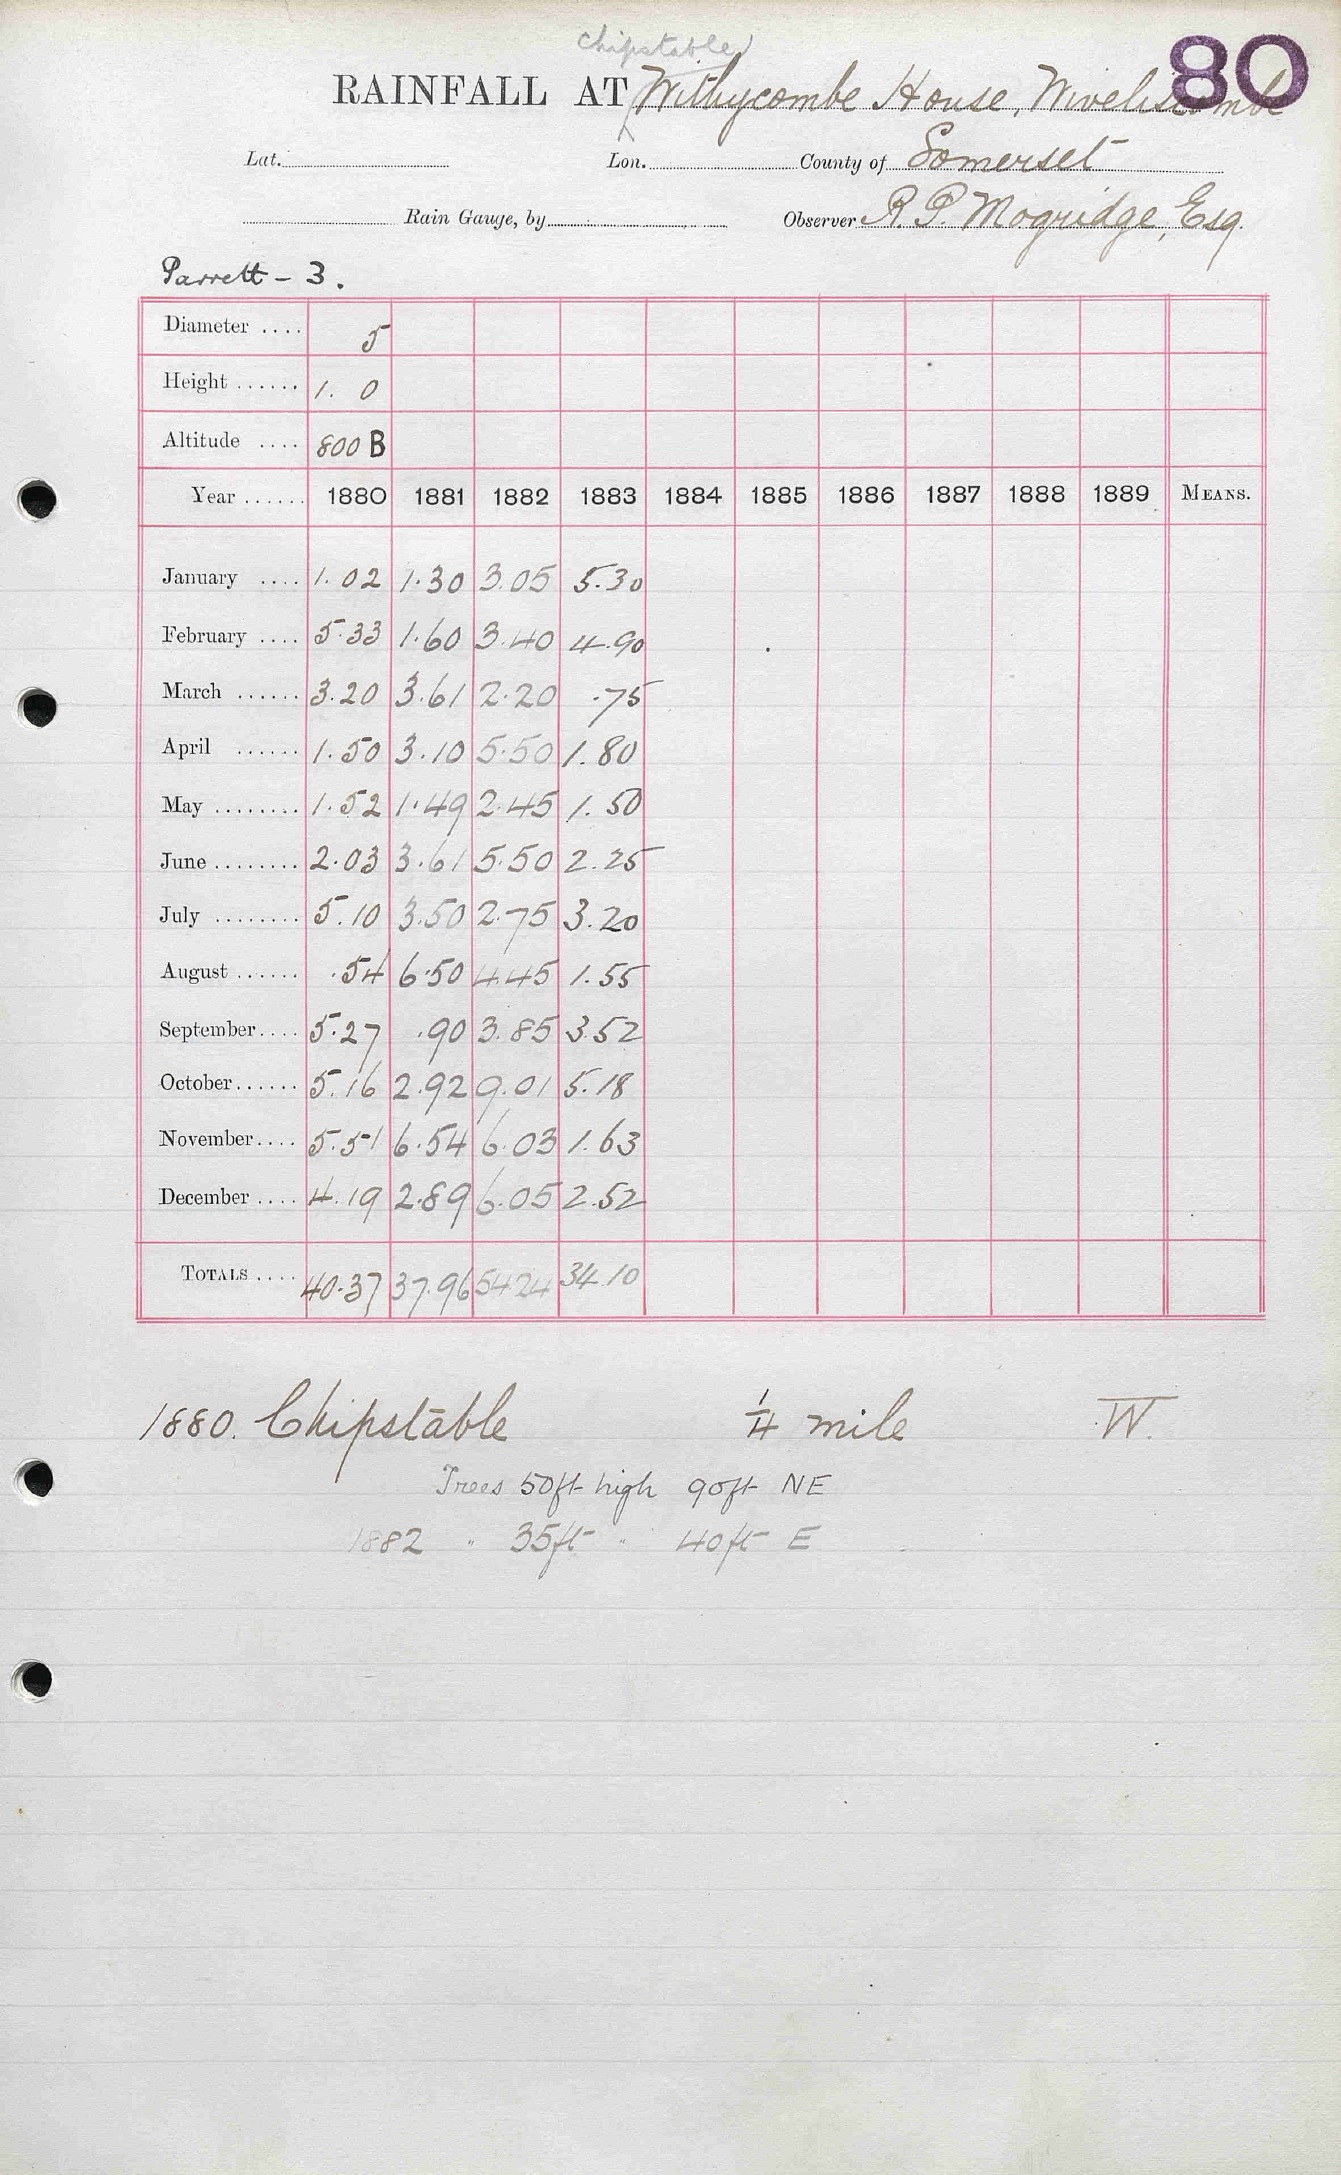 Chipstable
80
RAINFALL AT Withycombe House, Wiveliscombe
Lat. Lon. County of Somerset
Rain Gauge, by Observer R. P. Mogridge, Esq.
Parrett - 3.
Diameter .... 5
Height ...... 1. 0
Altitude .... 800 B
Year ...... 1880 1881 1882 1883 1884 1885 1886 1887 1888 1889 MEANS.
January .... 1.02 1.30 3.05 5.30
February .... 5.33 1.60 3.40 4.90
March ...... 3.20 3.61 2.20 .75
April ...... 1.50 3.10 5.50 1.80
May ........ 1.52 1.49 2.45 1.50
June ........ 2.03 3.61 5.50 2.25
July ........ 5.10 3.50 2.75 3.20
August ...... .54 6.50 4.45 1.55
September .... 5.27 .90 3.85 3.52
October ...... 5.16 2.92 9.01 5.18
November .... 5.51 6.54 6.03 1.63
December .... 4.19 2.89 6.05 2.52
TOTALS .... 40.37 37.96 54 24 34.10
1880. Chipstable 1/4 mile W.
Trees 50ft high 90ft NE
1882 " 35ft " 40ft E